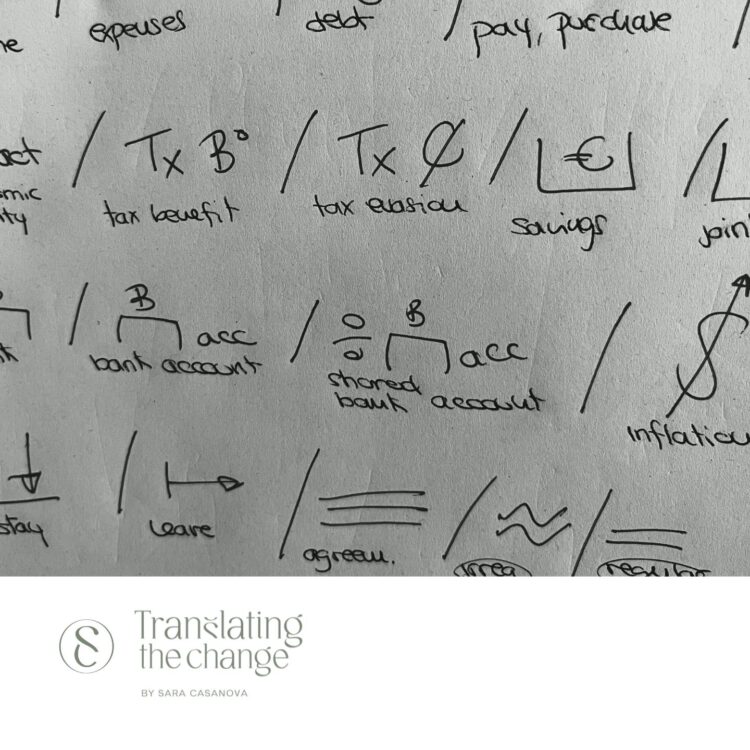 expenses / debt / pay, purchase /
/ Tx B° / Tx ₵ / € /
tax benefit tax evasion savings
/ B acc / B acc / $
bank account shared bank account inflation
/ / / / /
stay leave agreem.
Translating
the change
BY SARA CASANOVA